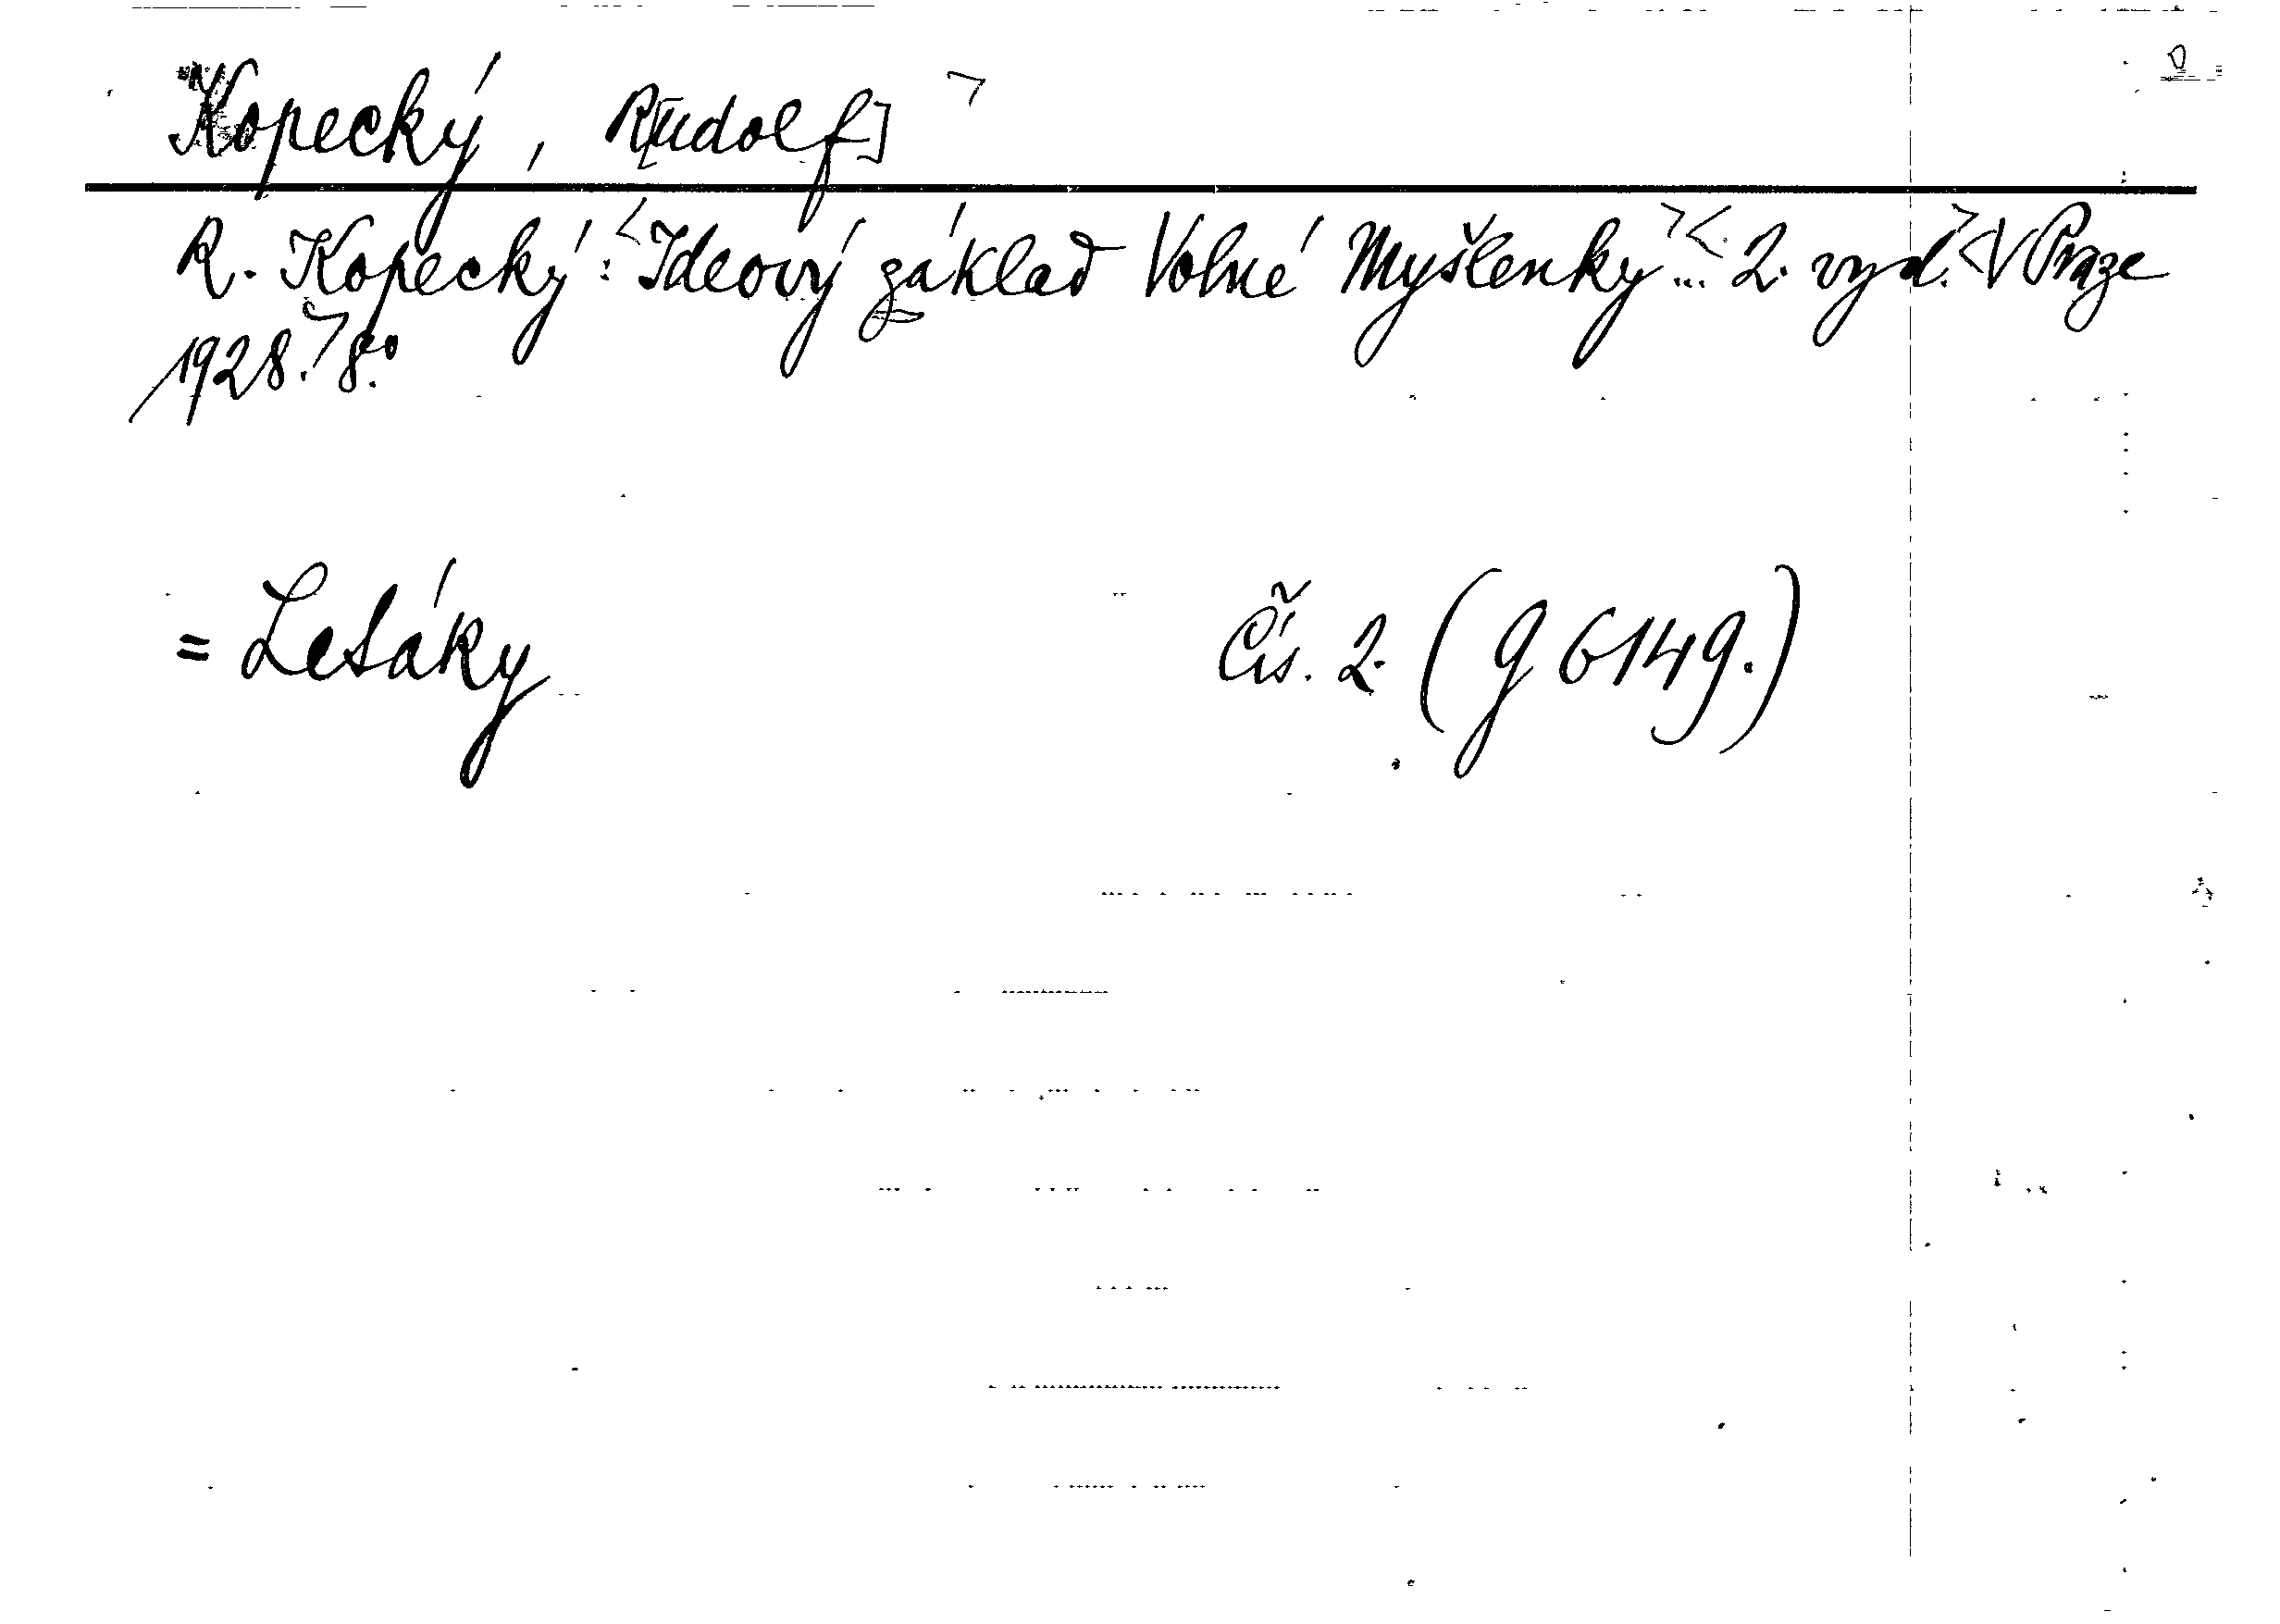 Kopecký, R[udolf]>
R. Kopecký: <Ideový základ Volné Myšlenky...> <2. vyd.> <V Praze
1928.> 8.°
= Letáky Čís. 2. (g 6149.)